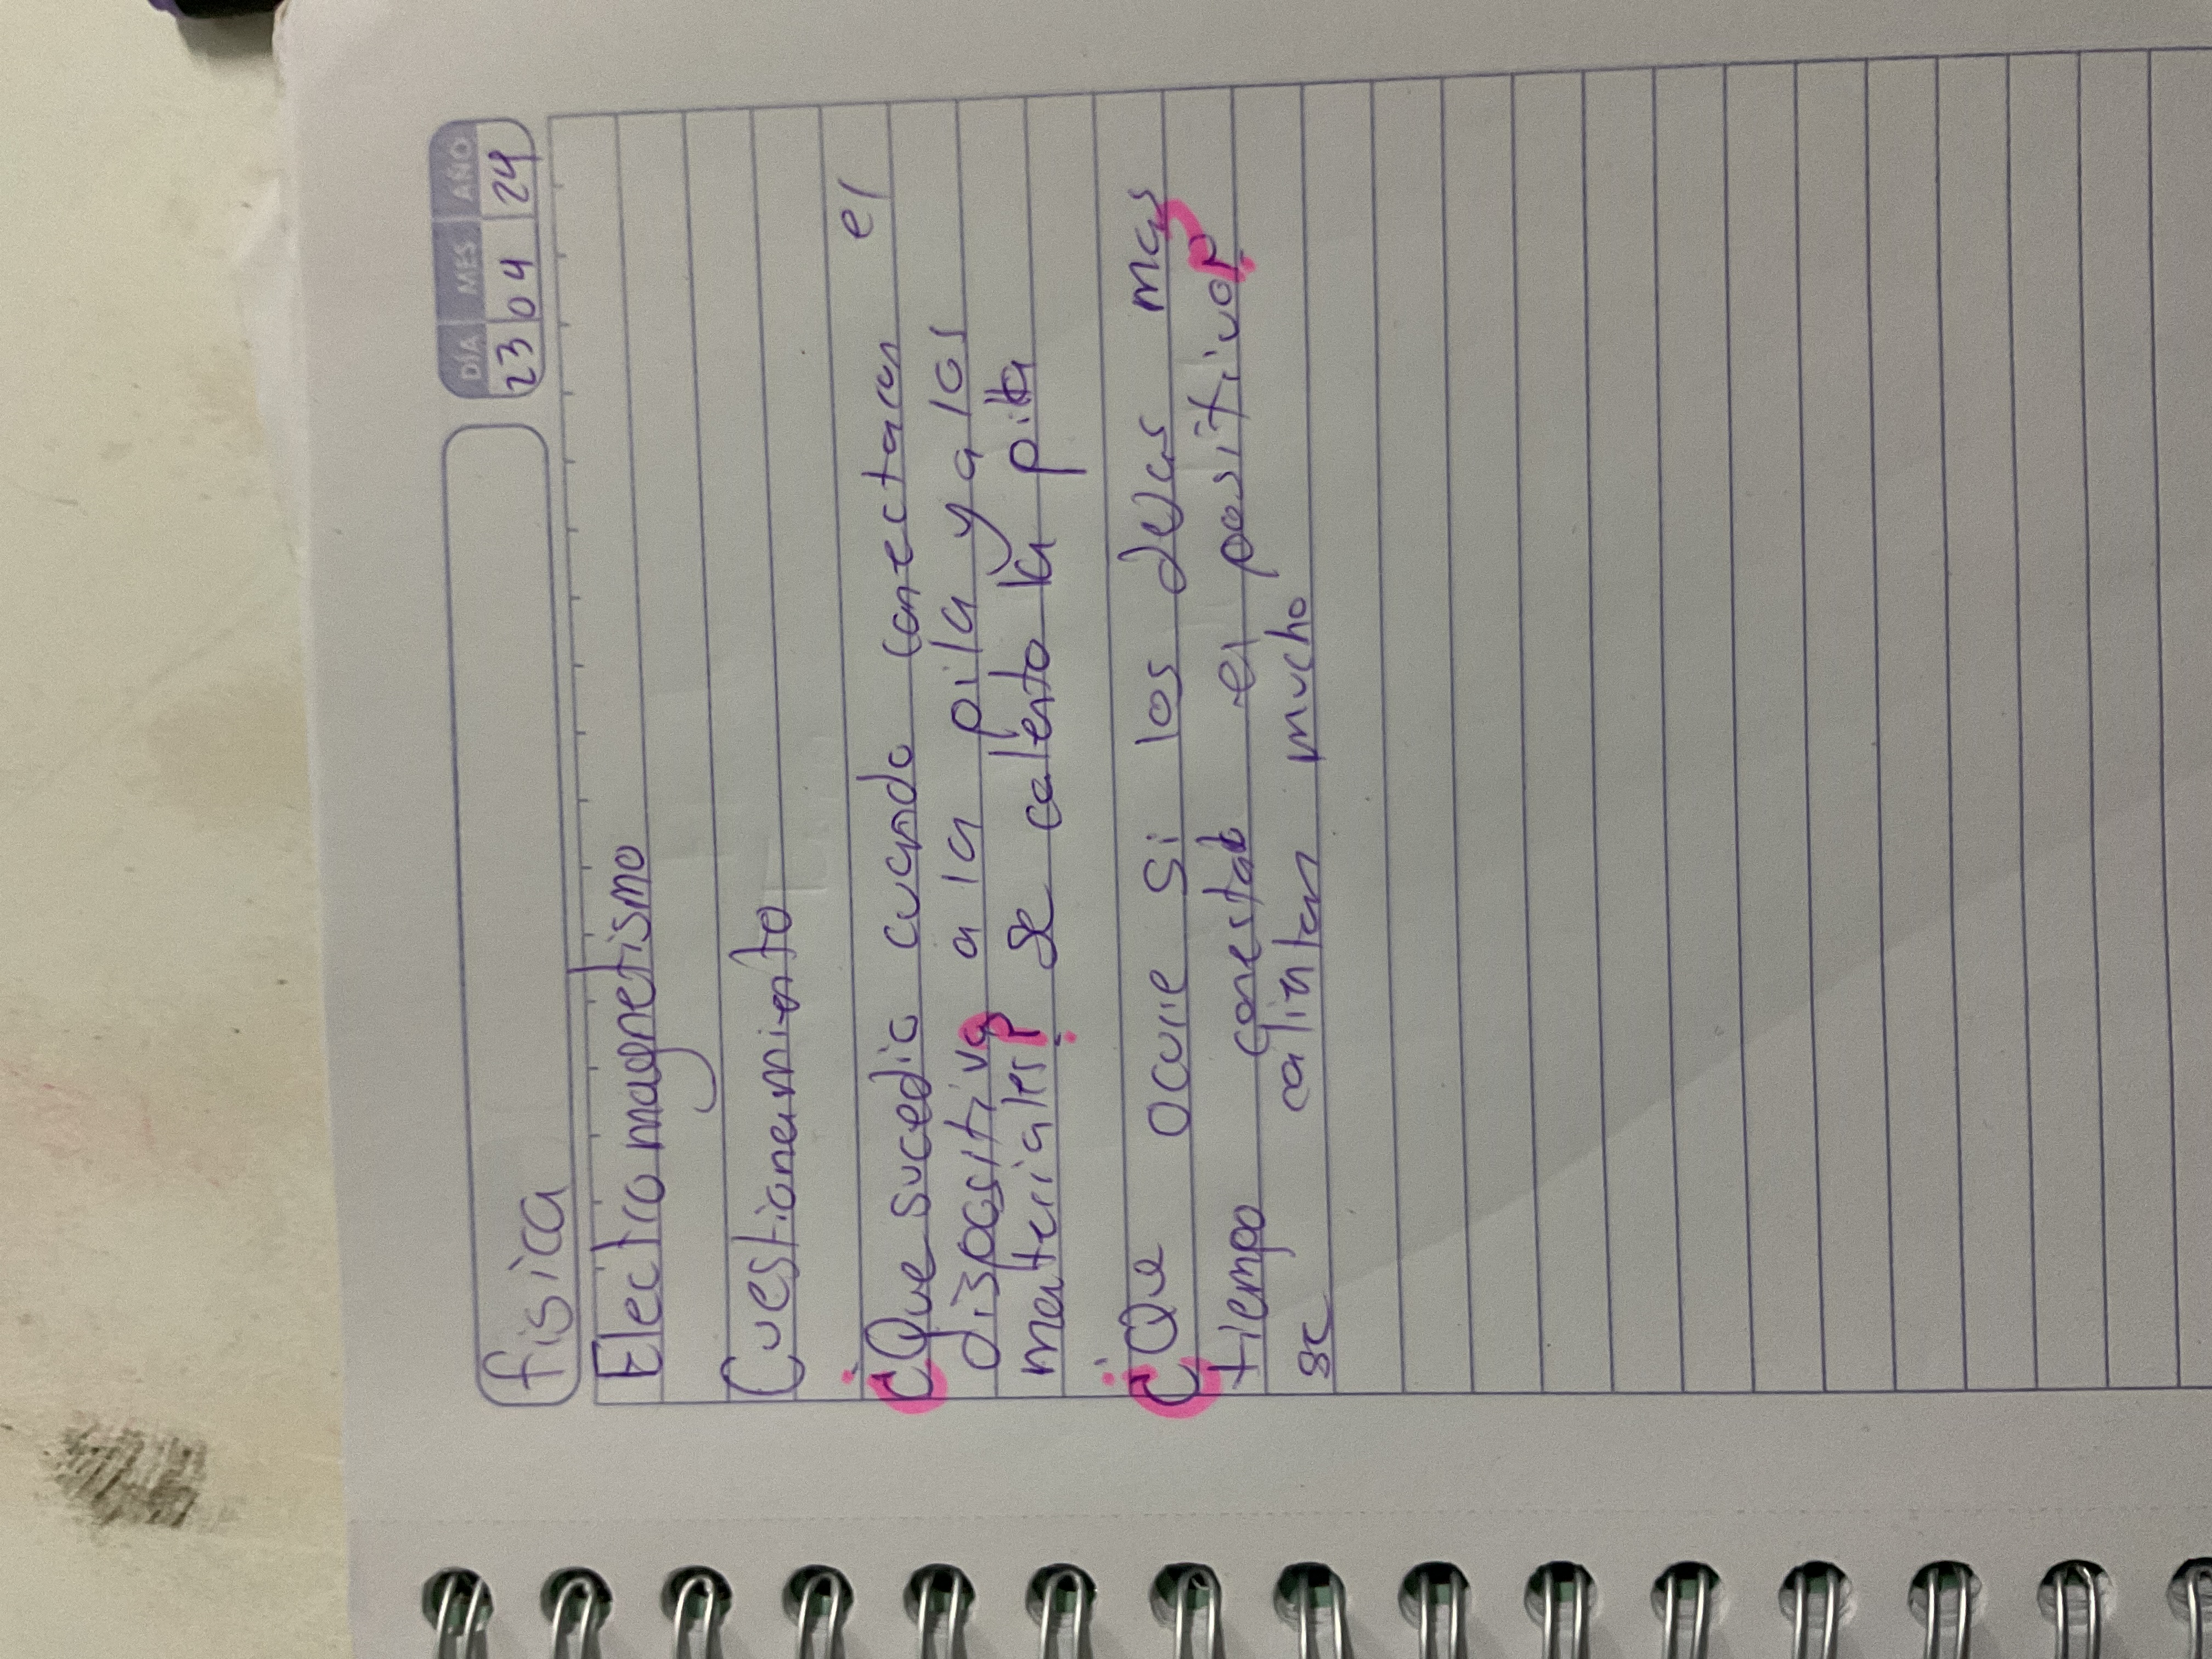 DÍA MES AÑO
23 04 24
fisica
Electromagnetismo
Cuestionamiento
¿Que sucedio cuando conectaron el
dispositivo a la pila y a los
materiales? se calento la pila
¿Que ocurre si los dejas mas
tiempo conestado el positivo?
se calintan mucho